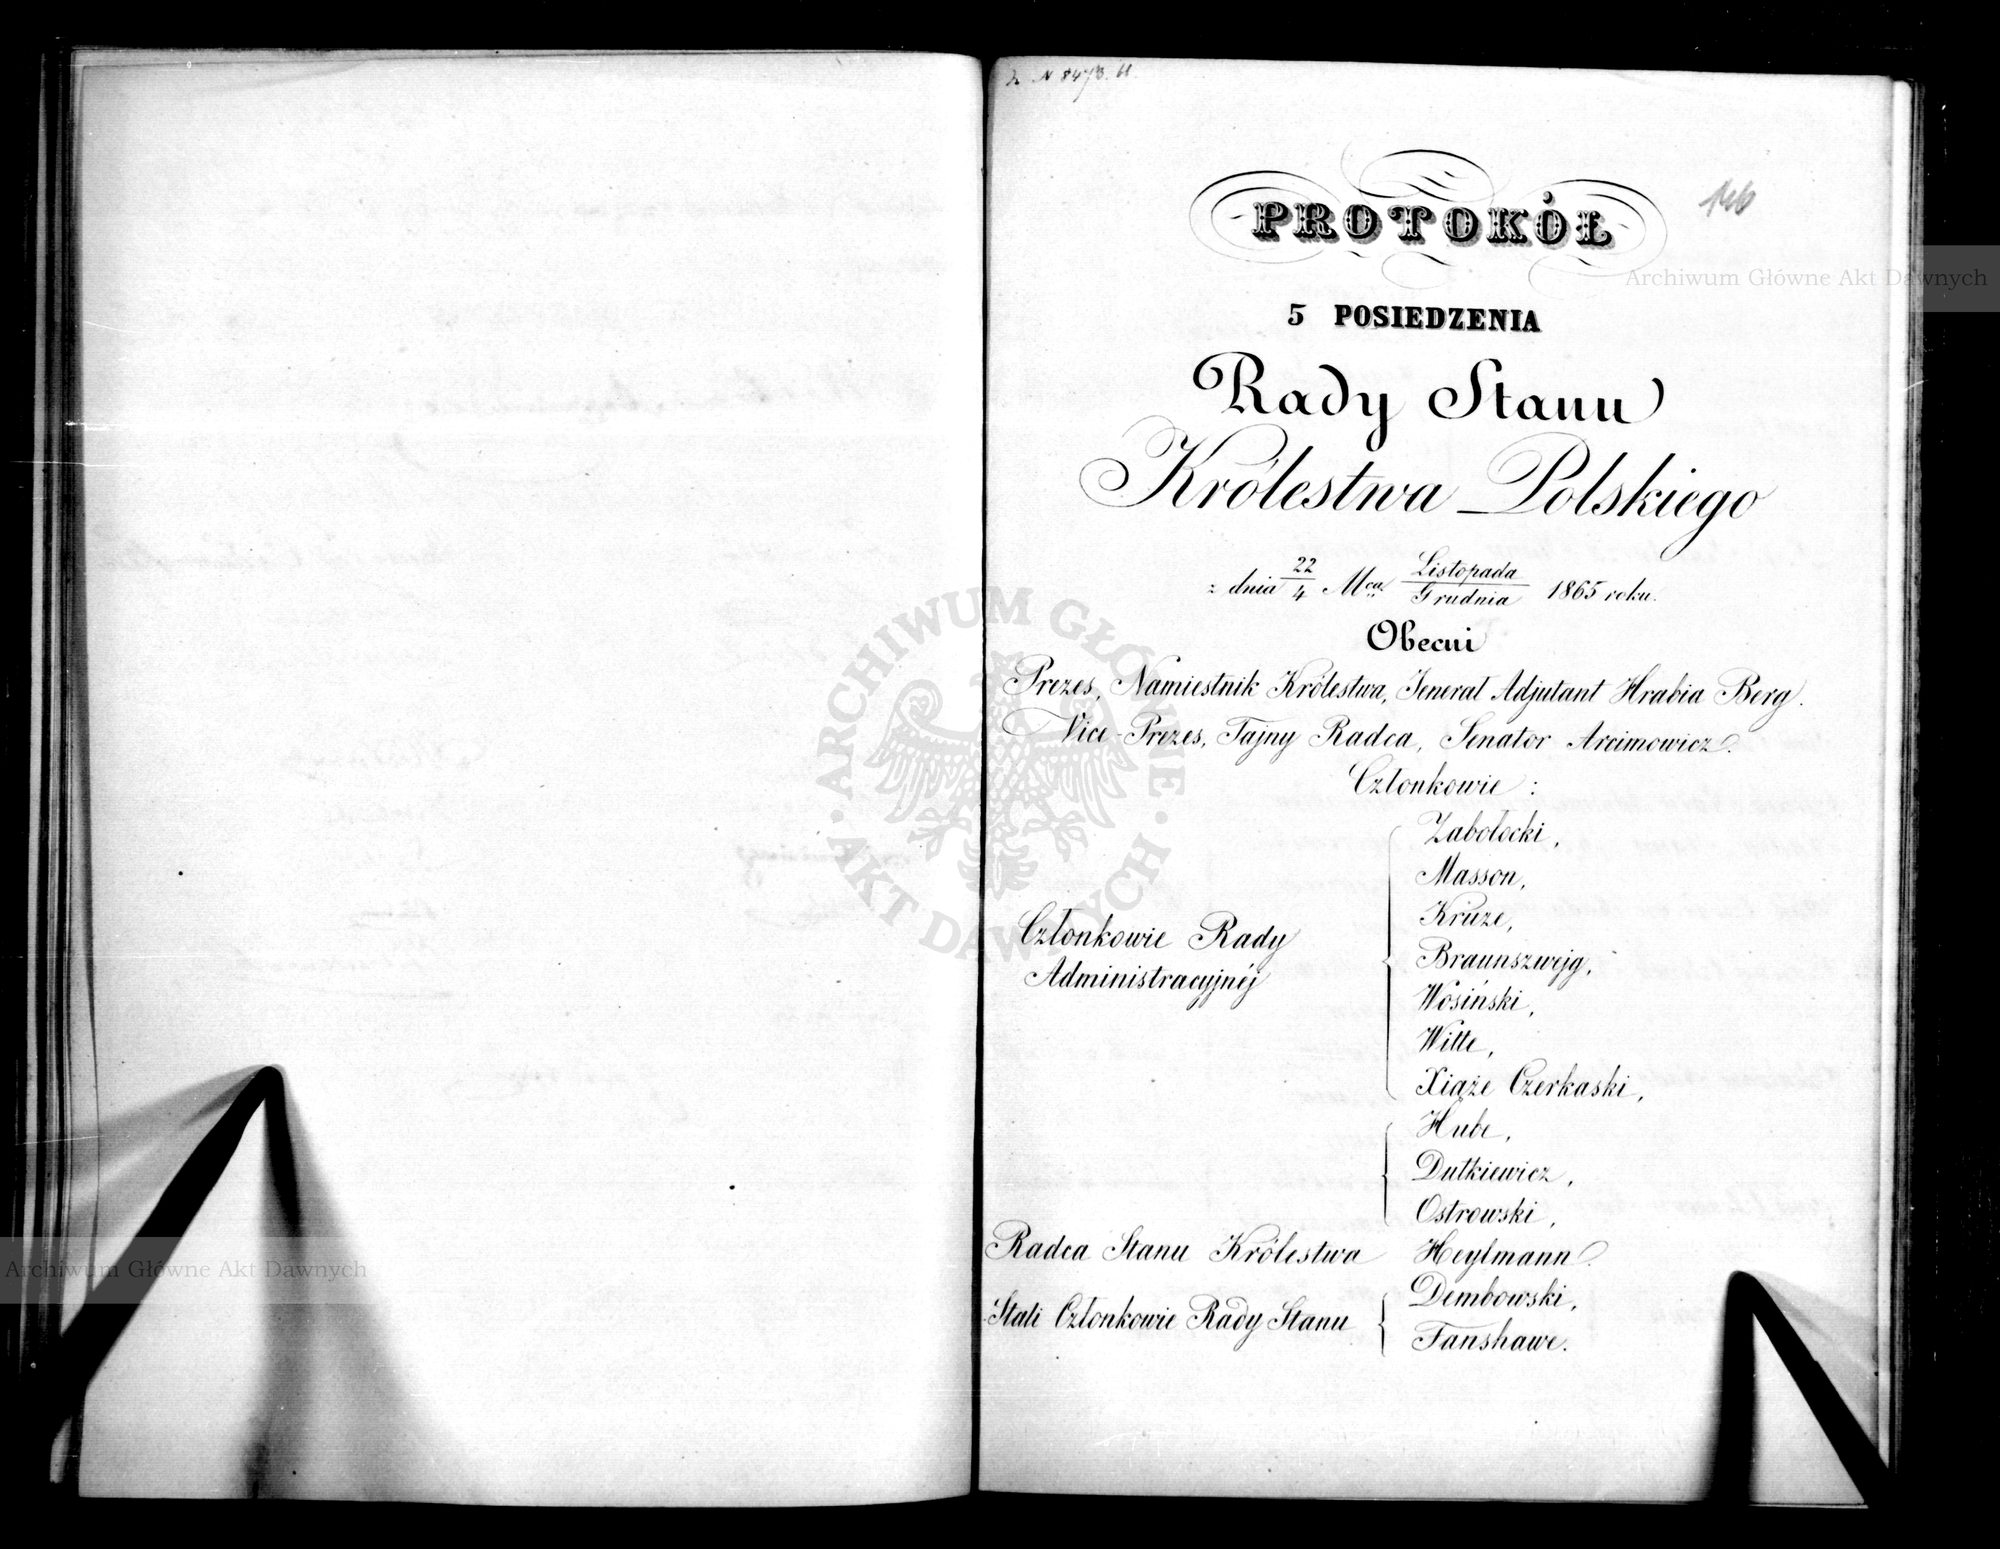 N 8473. U.
146
PROTOKÓŁ
5 POSIEDZENIA
Rady Stanu
Królestwa Polskiego
z dnia 22/4 Mca Listopada/Grudnia 1865 roku.
Obecni
Prezes, Namiestnik Królestwa, Jenerał Adjutant Hrabia Berg.
Vice-Prezes, Tajny Radca, Senator Arcimowicz.
Członkowie :
Członkowie Rady
Administracyjnéj
Zabołocki,
Masson,
Kruze,
Braunszwejg,
Wosiński,
Witte,
Xiąże Czerkaski,
Hube,
Dutkiewicz,
Ostrowski,
Radca Stanu Królestwa Heylmann.
Stali Członkowie Rady Stanu
Dembowski,
Fanshawe.
ARCHIWUM GŁÓWNE AKT DAWNYCH
Archiwum Główne Akt Dawnych
Archiwum Główne Akt Dawnych